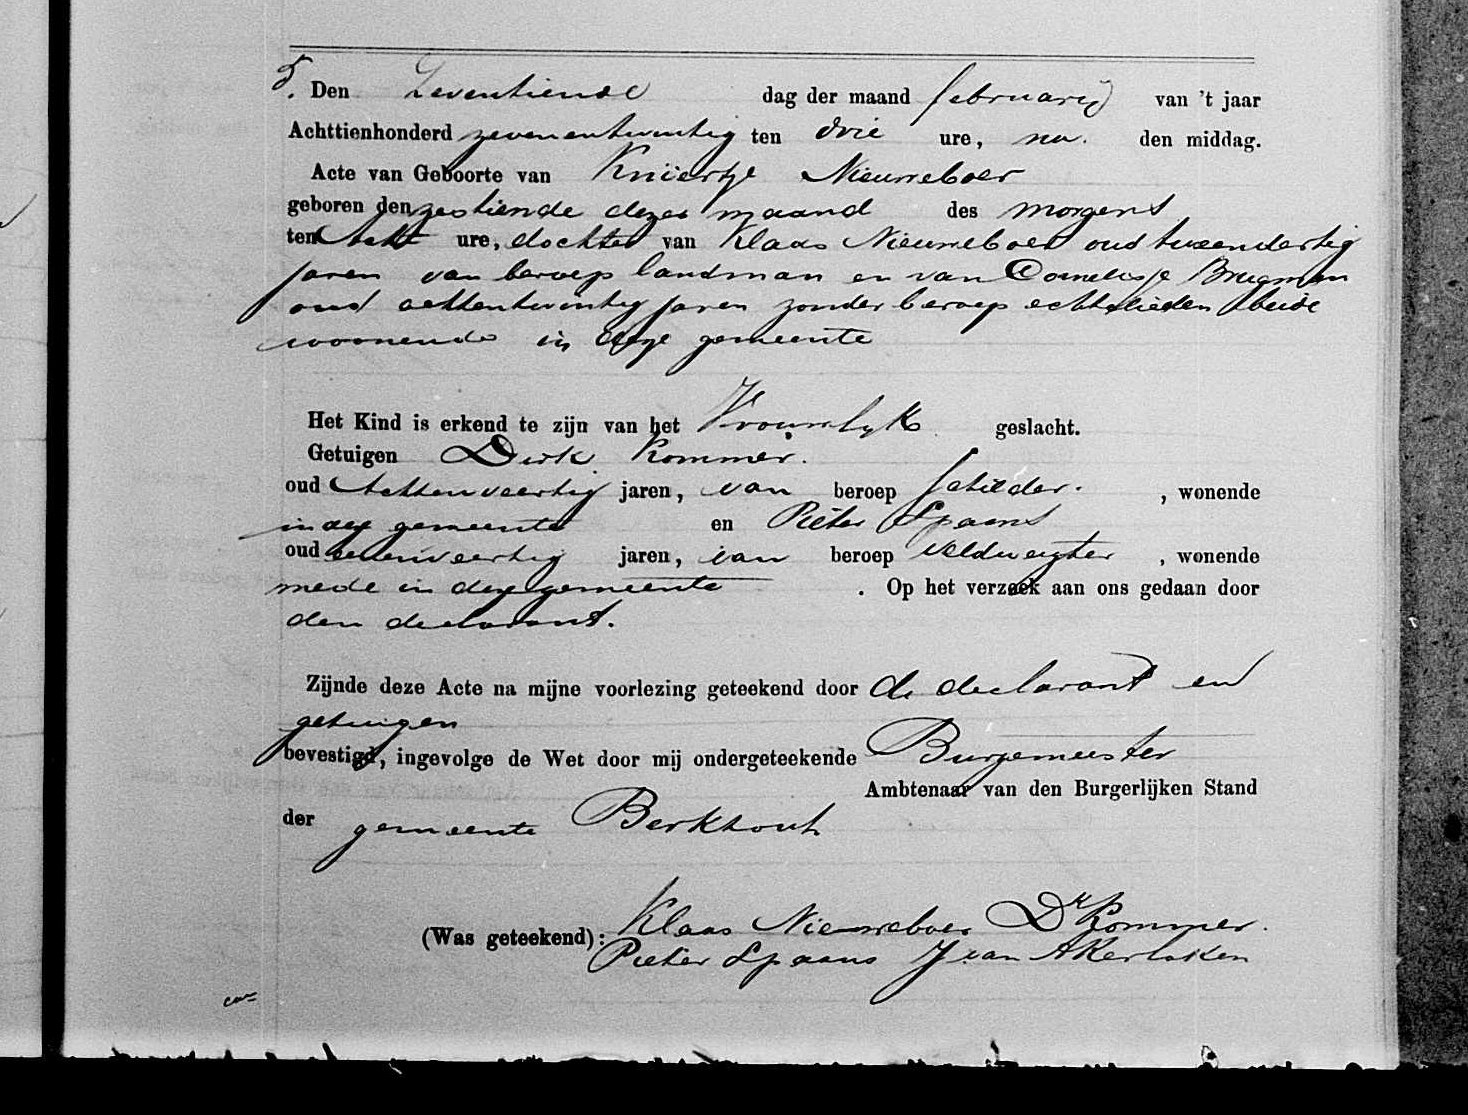 5. Den Zeventiende dag der maand februarij van 't jaar
Achttienhonderd zevenentwintig ten drie ure, na. den middag.
Acte van Geboorte van Kniertje Nieuweboer
geboren den zestiende dezer maand des morgens
ten Acht ure, dochter van Klaas Nieuweboer oud tweendertig
jaren van beroep landman en van Cornelisje Brugman
oud achtentwintig jaren zonder beroep echtelieden beide
woonende in deze gemeente
Het Kind is erkend te zijn van het Vrouwelyk geslacht.
Getuigen Dirk Kommer.
oud Achtenveertig jaren, van beroep schilder. , wonende
in deze gemeente en Pieter Spaans
oud eenenveertig jaren, van beroep veldwagter , wonende
mede in deze gemeente . Op het verzoek aan ons gedaan door
den declarant.
Zijnde deze Acte na mijne voorlezing geteekend door de declarant en
getuigen
bevestigd, ingevolge de Wet door mij ondergeteekende Burgemeester
Ambtenaar van den Burgerlijken Stand
der gemeente Berkhout
(Was geteekend): Klaas Nieuweboer Dk Kommer.
Pieter Spaans Jvan Akerlaken